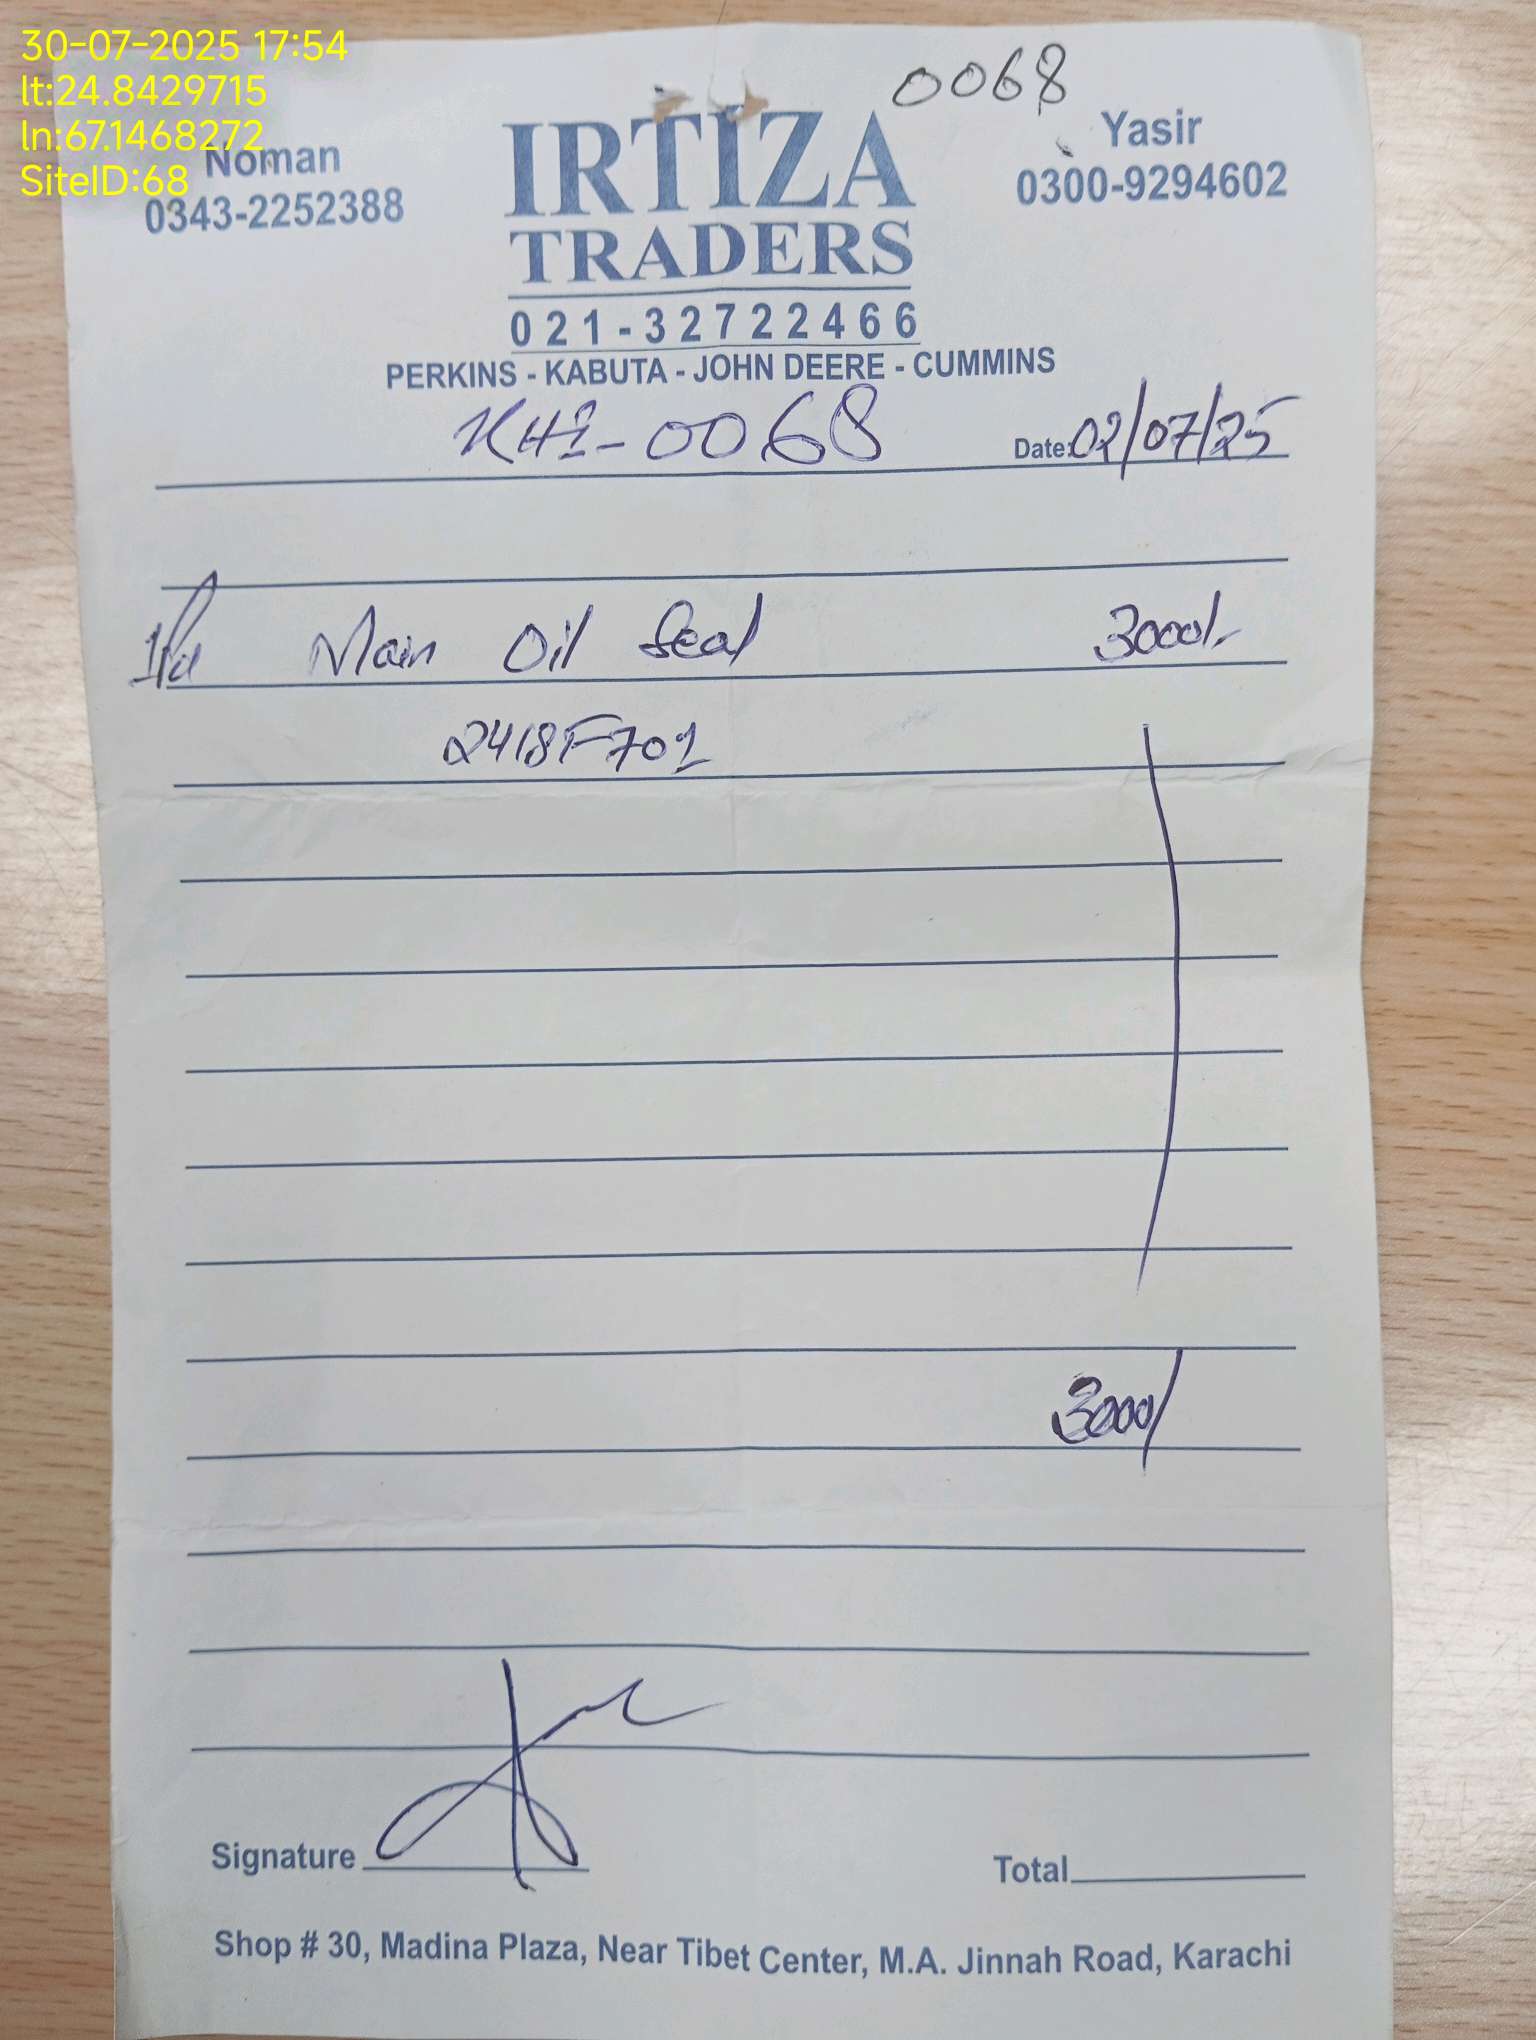 30-07-2025 17:54
lt:24.8429715
ln:67.1468272
SiteID:68
0068
Noman
0343-2252388
IRTIZA
TRADERS
Yasir
0300-9294602
021-32722466
PERKINS - KABUTA - JOHN DEERE - CUMMINS
KHI-0068
Date: 02/07/25
Main Oil Seal 3000/-
2418F701
3000/
Signature
Total
Shop # 30, Madina Plaza, Near Tibet Center, M.A. Jinnah Road, Karachi